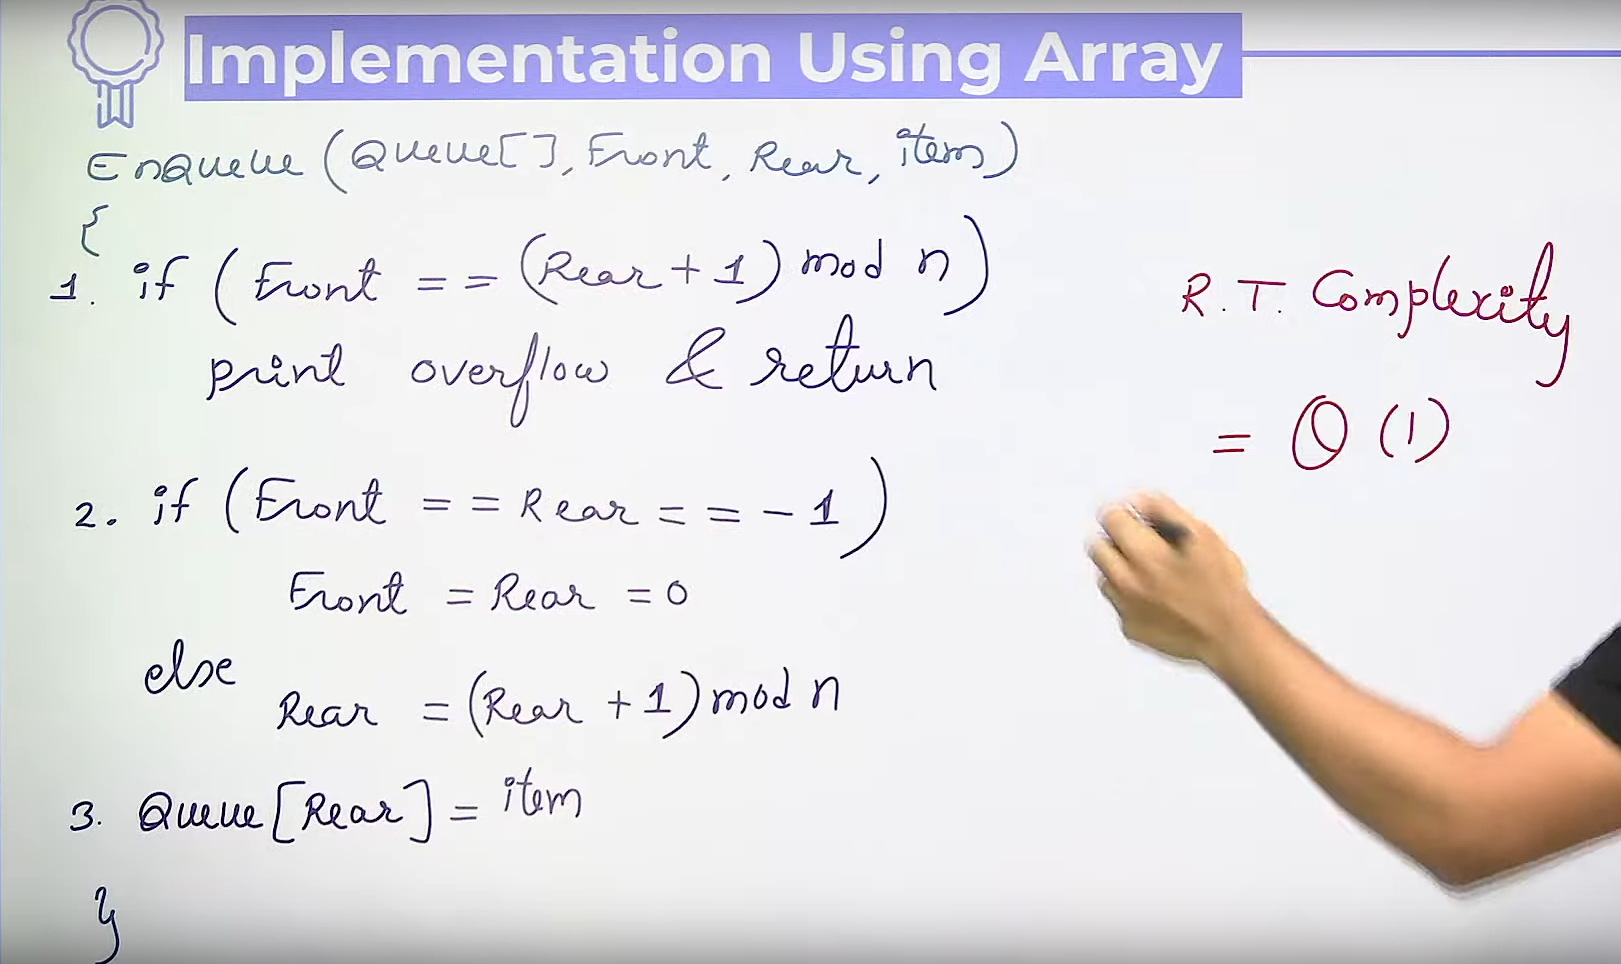 Implementation Using Array
EnQueue (Queue[], Front, Rear, item)
{
1. if (Front == (Rear+1) mod n)
print overflow & return
2. if (Front == Rear == -1)
Front = Rear = 0
else
Rear = (Rear + 1) mod n
3. Queue [Rear] = item
}
R.T. Complexity
= O (1)